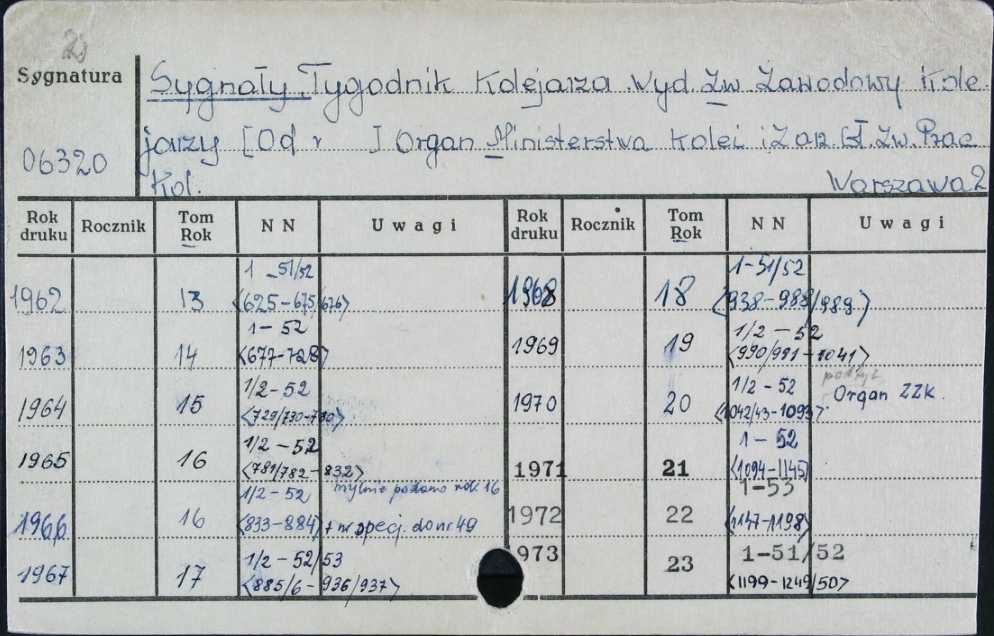 2)
Sygnatura
06320
Sygnały. Tygodnik Kolejarza. Wyd. Zw. Zawodowy Kole-
jarzy [Od r ] Organ Ministerstwa Kolei i Zarz. Gł. Zw. Prac
Kol. Warszawa 2
Rok druku Rocznik Tom Rok NN Uwagi Rok druku Rocznik Tom Rok NN Uwagi
1962 13 1-51/52 <625-675/676> 1968 18 1-51/52 <938-988/989>
1963 14 1-52 <677-728> 1969 19 1/2-52 <990/991-1041>
1964 15 1/2-52 <729/730-780> 1970 20 1/2-52 <1042/43-1093> Organ ZZK.
1965 16 1/2-52 <781/782-832> 1971 21 1-52 <1094-1145>
mylnie podano rok 16
1966 16 1/2-52 <833-884> + nr specj. do nr 49 1972 22 1-53 <1147-1198>
1967 17 1/2-52/53 <885/6-936/937> 973 23 1-51/52 <1199-1249/50>